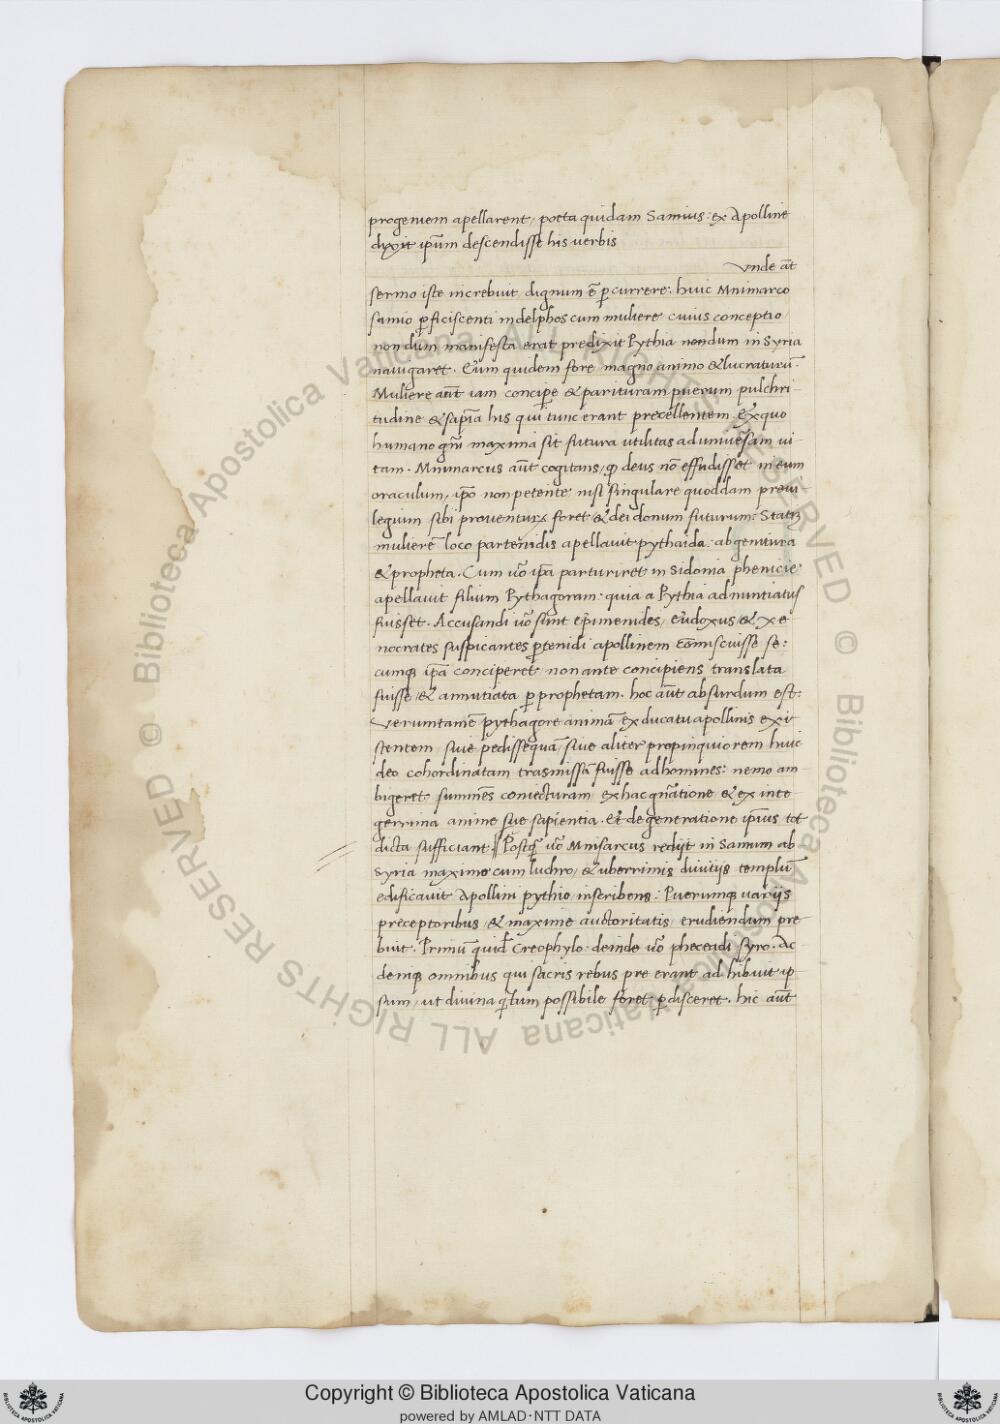 progeniem apellarent, poeta quidam Samius: ex Apolline
dixit ip̄um descendisse his uerbis
Vnde āt
sermo iste increbuit dignum ē ꝑcurrere: huic Mnimarco
samio ꝓficiscenti in delphos cum muliere cuius conceptio
non dum manifesta erat predixit Pythia nondum in Syria
nauigaret. Eum quidem fore magno animo & lucraturū.
Muliere aūt iam concipe & parituram puerum pulchri-
tudine & sap̄ia his qui tunc erant precellentem. Ex quo
humano gn̄i maxima sit futura utilitas ad uniuersam ui
tam. Mnimarcus aūt cogitans, ꝙ deus nō effudisset in eum
oraculum, ip̄o non petente nisi singulare quoddam preui
legium sibi prouenturū foret & dei donum futurum: Statiꝫ
mulierē loco partenidis apellauit pythaida: ab genitura
& propheta. Cum u̅o ip̄a parturiret in Sidonia phenicie
apellauit filium Pythagoram: quia a Pythia adnuntiatus
fuisset. Accusandi u̅o sunt epimenides, eudoxus & xe
nocrates suspicantes ꝑtenidi apollinem cōmiscuisse se:
eumqꝫ ip̄a conciperet non ante concipiens translata
fuisse & annutiata ꝑ prophetam. hoc aūt absurdum est:
Veruntamē pythagore animā ex ducatu apollinis exi
stentem, siue pedissequā, siue aliter propinquiorem huic
deo cohordinatam trasmissā fuisse ad homines: nemo am
bigeret sumēs coniecturam ex hac gn̄atione & ex inte
gerrima anime sue sapientia. Et de generatione ip̄ius tot
dicta sufficiant. Postꝙ̄ u̅o Mnisarcus redijt in Samum ab
Syria maximo cum luchro, & uberrimis diuitijs templū
edificauit Apollini pythio inscribens: Puerumqꝫ uarijs
preceptoribus & maxime auctoritatis erudiendum pre
buit. Primū quid̄ Creophylo. deinde u̅o pherecidi syro. Ac
deniqꝫ omnibus qui sacris rebus pre erant adhibuit ip
sum, ut diuina q̄tum possibile foret ꝑdisceret. hic aūt
Copyright © Biblioteca Apostolica Vaticana
powered by AMLAD·NTT DATA